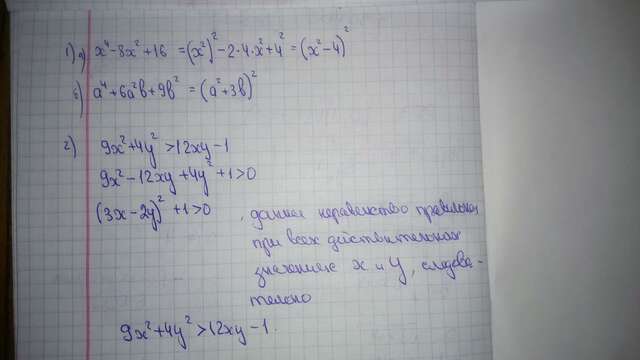 1) а) x⁴-8x²+16 = (x²)²-2·4·x²+4² = (x²-4)²
б) a⁴+6a²b+9b² = (a²+3b)²
2) 9x²+4y²>12xy-1
9x²-12xy+4y²+1>0
(3x-2y)²+1>0 , данное неравенство правильное
при всех действительных
значениях x и y, следова-
тельно
9x²+4y²>12xy-1.